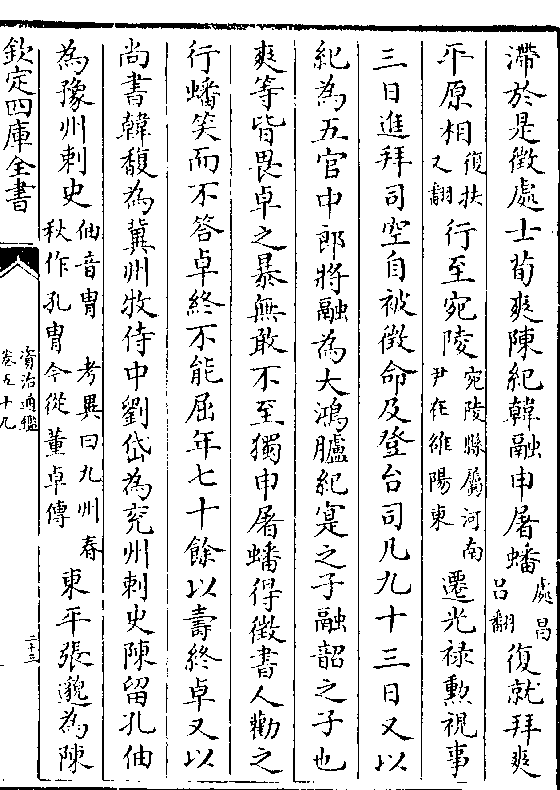 滯於是徵處士荀爽陳紀韓融申屠蟠處昌呂翻復就拜爽
平原相復扶又翻行至宛陵宛陵縣屬河南尹在雒陽東遷光祿勲視事
三日進拜司空自被徵命及登台司凡九十三日又以
紀為五官中郎將融為大鴻臚紀寔之子融韶之子也
爽等皆畏卓之暴無敢不至獨申屠蟠得徵書人勸之
行蟠笑而不答卓終不能屈年七十餘以壽終卓又以
尚書韓馥為冀州牧侍中劉岱為兖州刺史陳留孔伷
為豫州刺史伷音胄 考異曰九州春秋作孔胄今從董卓傳東平張邈為陳
欽定四庫全書
資治通鑑
卷五十九
二十三